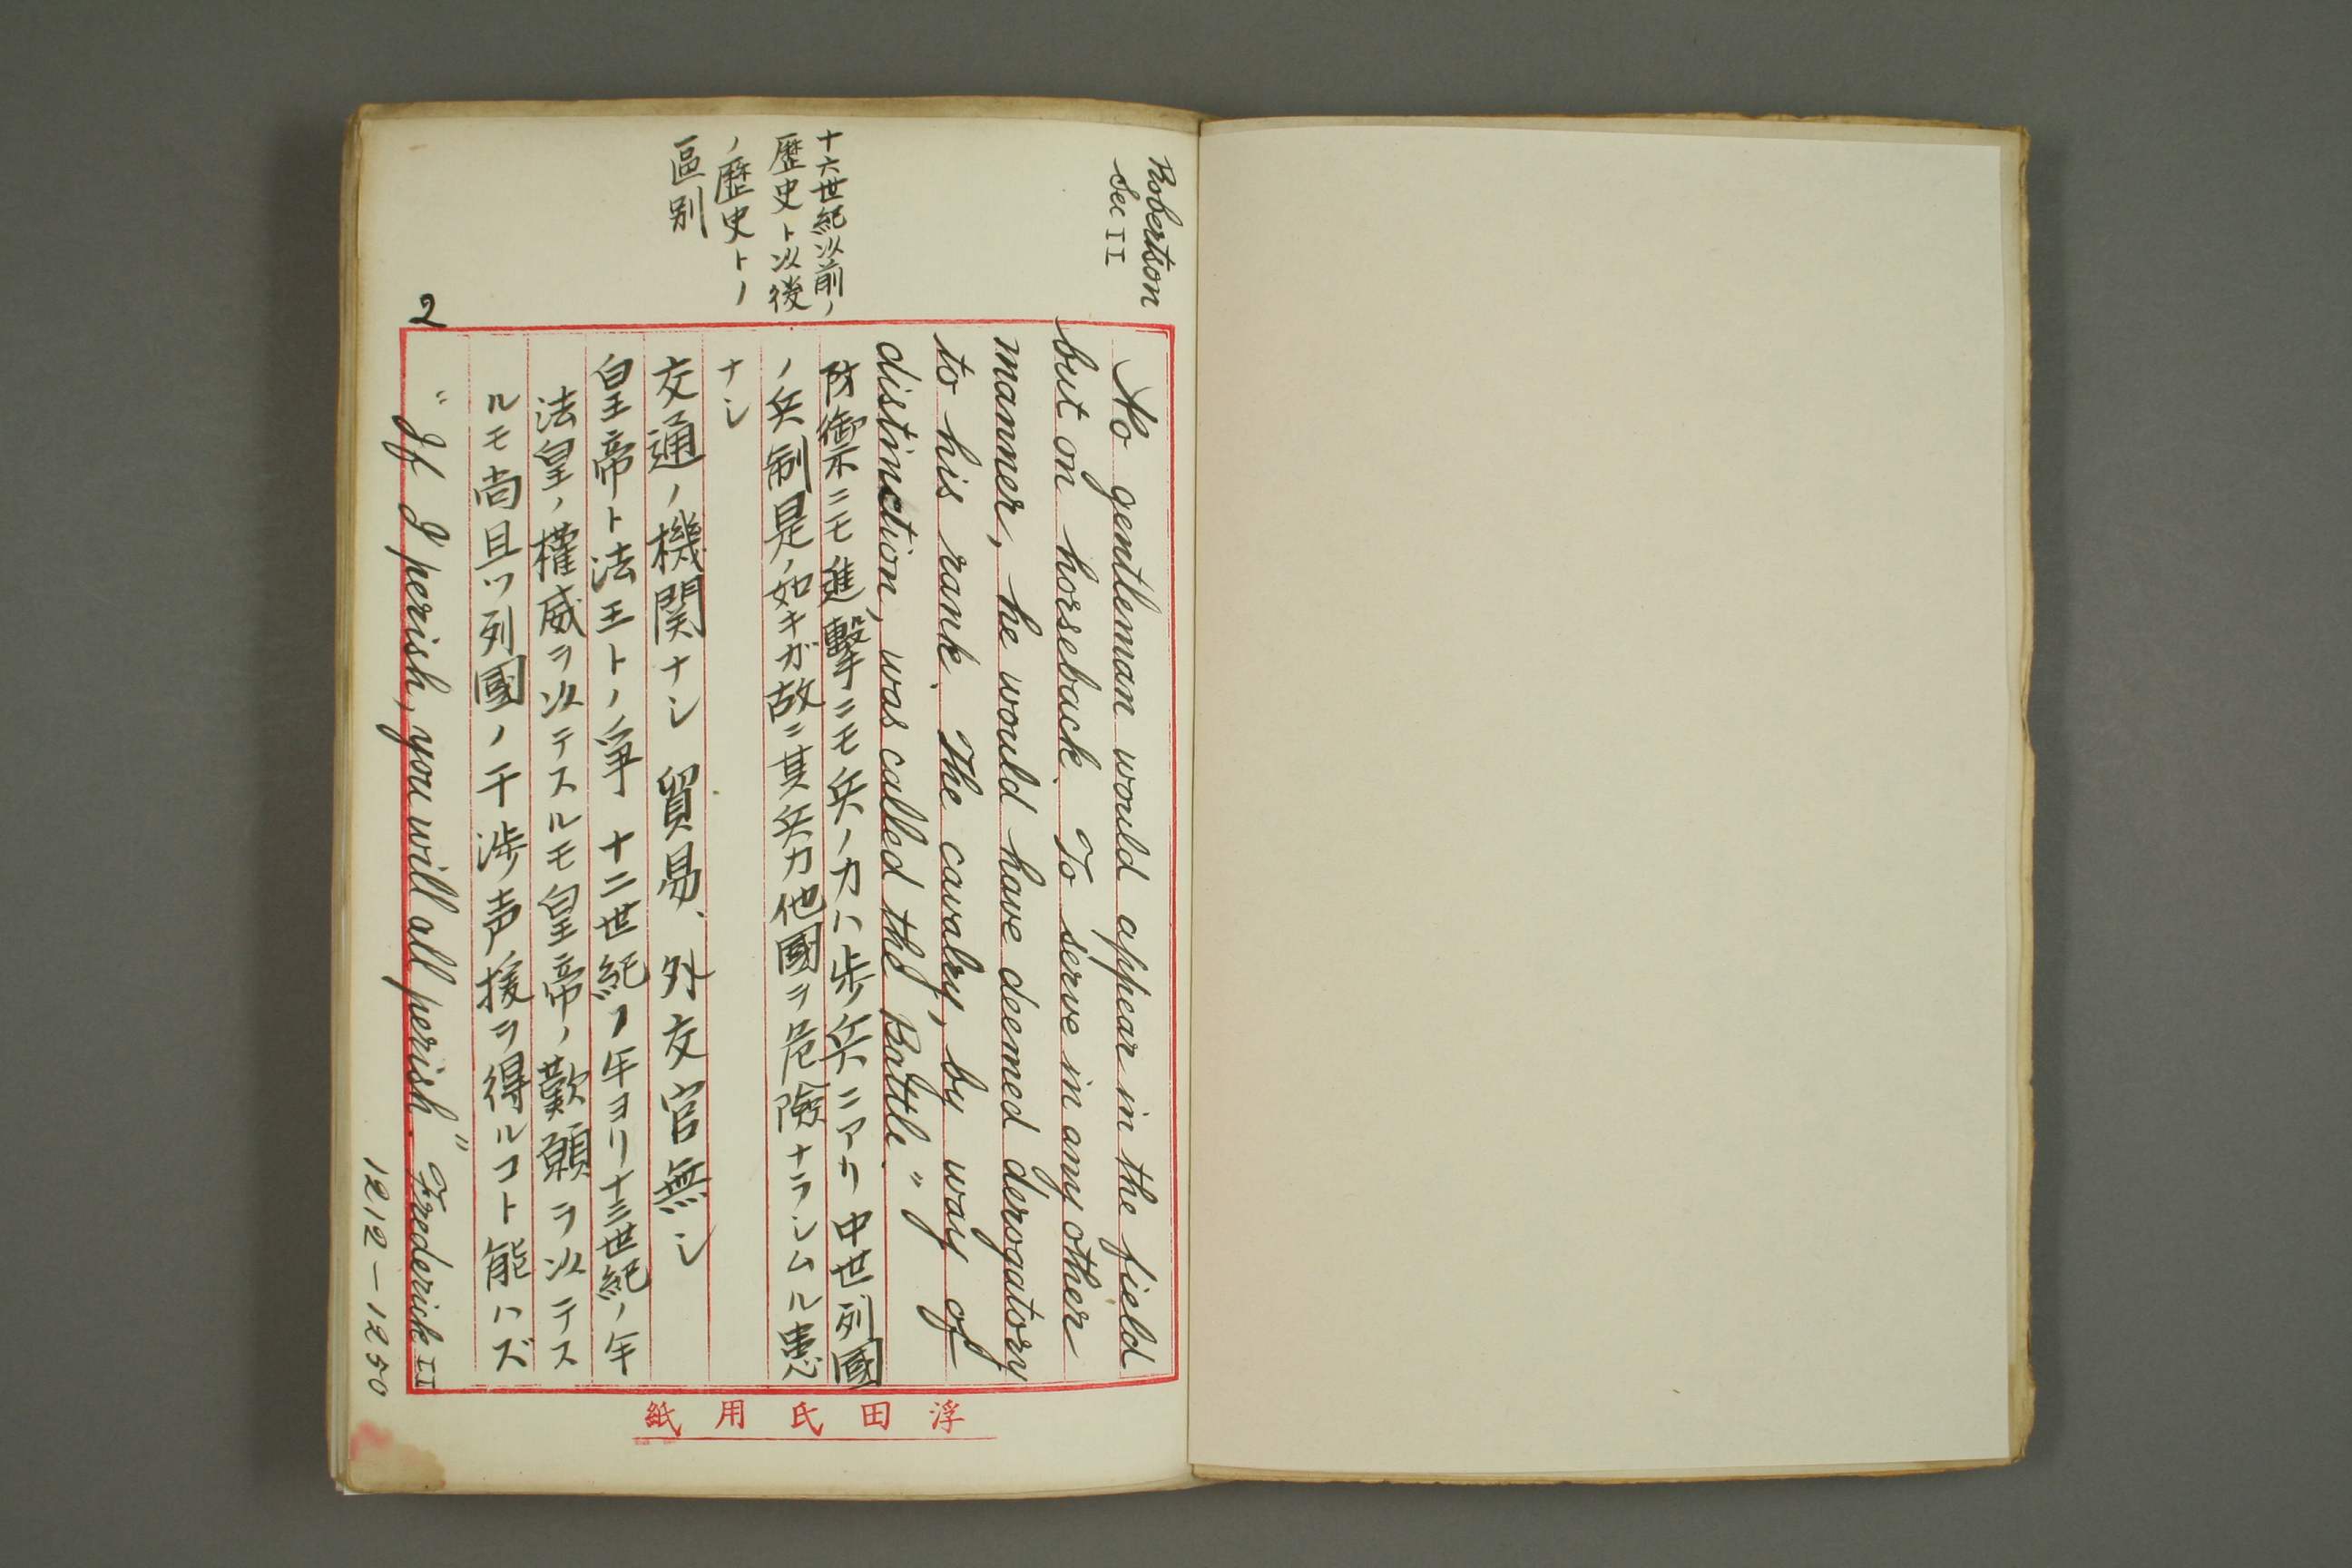 Robertson
Sec II
No gentleman would appear in the field
but on horseback. To serve in any other
manner, he would have deemed derogatory
to his rank. The cavalry, by way of
distinction, was called the Battle."
十六世紀以前ノ
歴史ト以後
ノ歴史トノ
區別
防禦ニモ進擊ニモ兵ノ力ハ歩兵ニアリ中世列國
ノ兵制是ノ如キガ故ニ其兵力他國ヲ危險ナラシムル患
ナシ
交通ノ機関ナシ 貿易、外交官無シ
皇帝ト法王トノ爭 十二世紀ノ年ヨリ十三世紀ノ年
法皇ノ權威ヲ以テスルモ皇帝ノ歎願ヲ以テス
ルモ尚且ツ列國ノ干渉声援ヲ得ルコト能ハズ
"If I perish, you will all perish." Frederick II
1212—1250
2
浮田氏用紙